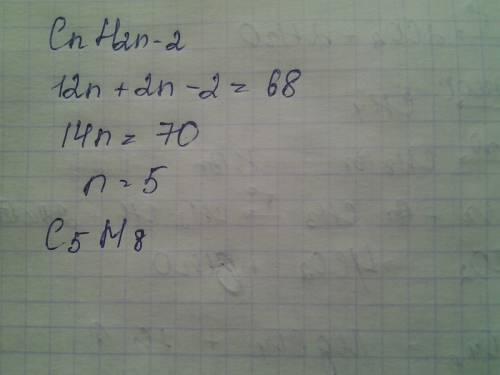 CnH2n-2
12n + 2n - 2 = 68
14n = 70
n = 5
C5H8